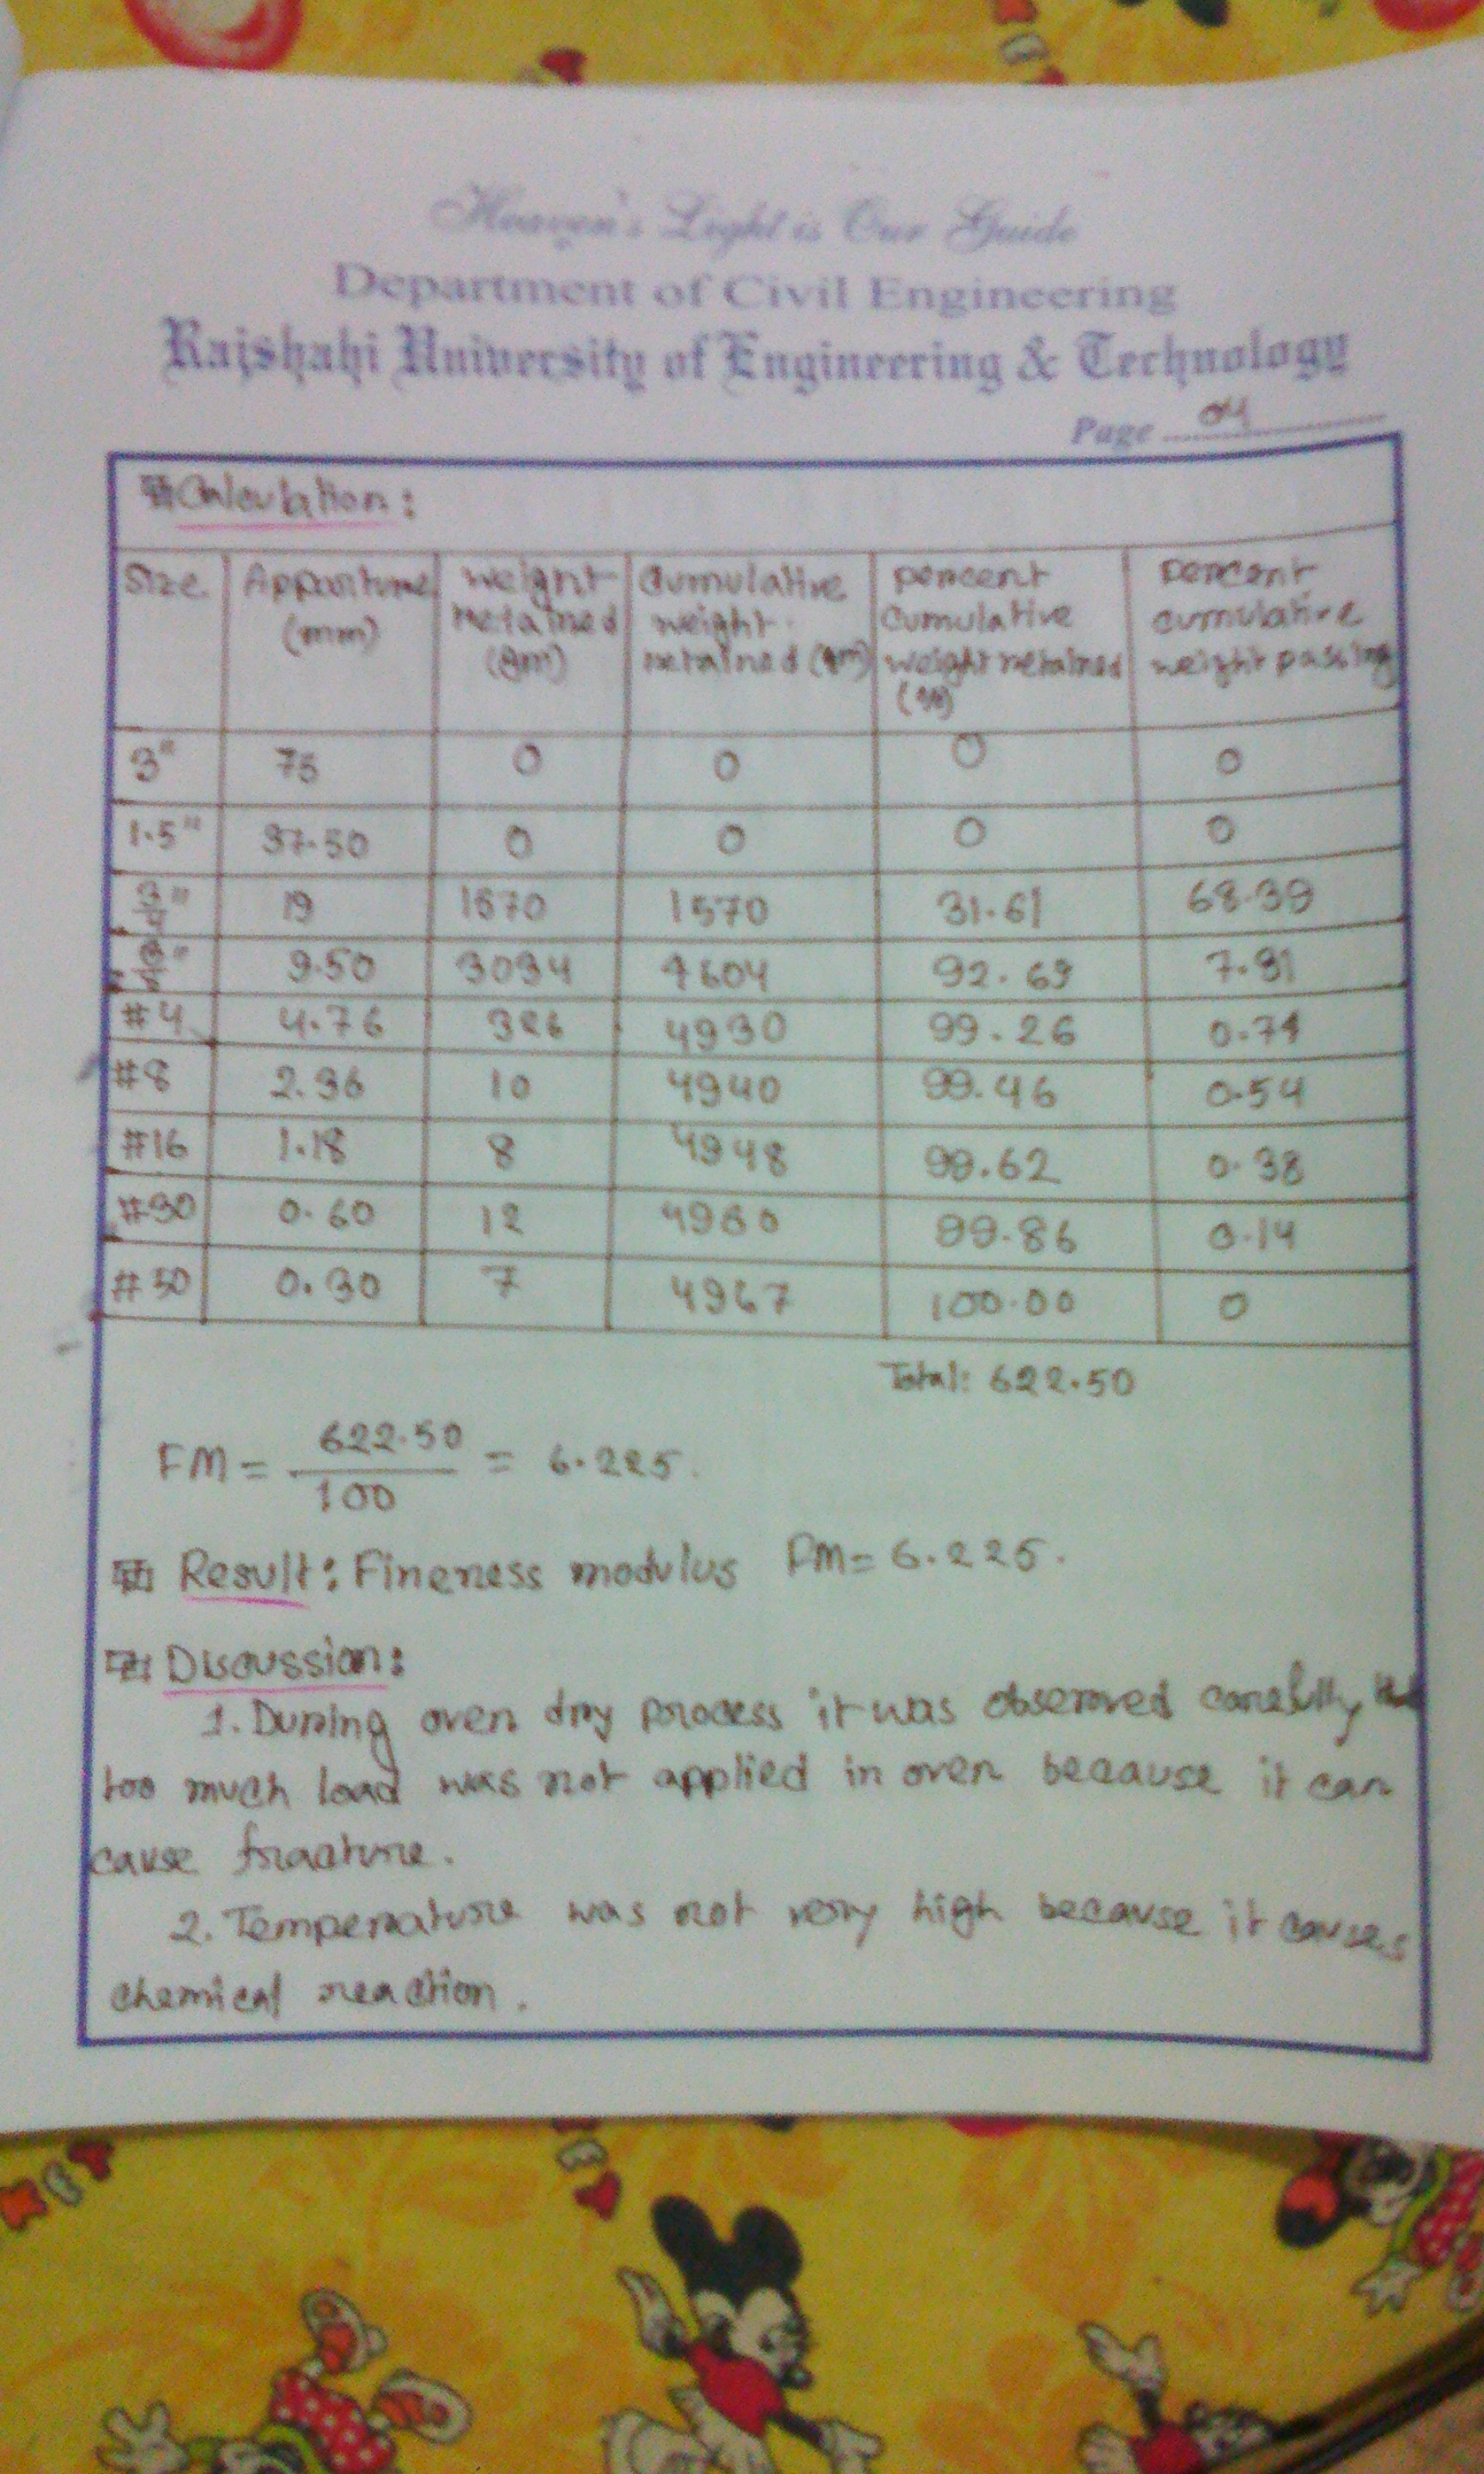 Heaven's Light is Our Guide
Department of Civil Engineering
Rajshahi University of Engineering & Technology
Page 04
Calculation:
Size Apparture (mm) weight retained (gm) Cumulative weight retained (gm) percent cumulative weight retained (%) percent cumulative weight passing
3" 75 0 0 0 0
1.5" 37.50 0 0 0 0
3/4" 19 1570 1570 31.61 68.39
3/8" 9.50 3034 4604 92.69 7.31
#4 4.76 326 4930 99.26 0.74
#8 2.36 10 4940 99.46 0.54
#16 1.18 8 4948 99.62 0.38
#30 0.60 12 4960 99.86 0.14
#50 0.30 7 4967 100.00 0
Total: 622.50
FM = 622.50/100 = 6.225.
Result: Fineness modulus FM= 6.225.
Discussion:
1. During oven dry process it was observed carefully
too much load was not applied in oven because it can
cause fracture.
2. Temperature was not very high because it causes
chemical reaction.